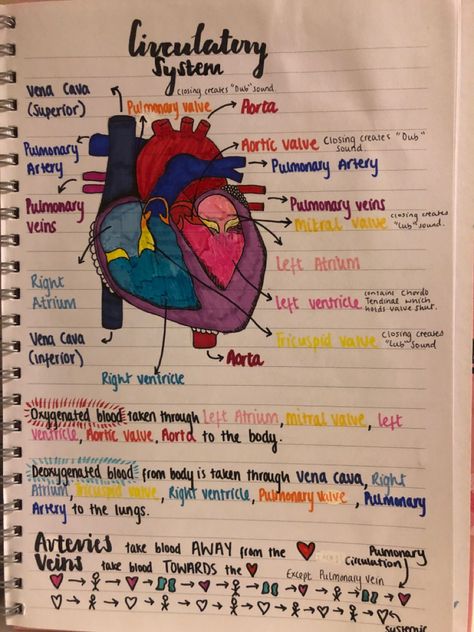 Circulatory
System
Vena Cava
(Superior)
closing creates "Dub" sound.
Pulmonary valve
Aorta
Pulmonary
Artery
Aortic valve
Closing creates "Dub"
sound.
Pulmonary Artery
Pulmonary
veins
Pulmonary veins
Mitral valve
closing creates
"Lub" sound.
Left Atrium
Right
Atrium
Left ventricle
contains Chordo
Tendinal which
holds valve shut.
Vena Cava
(inferior)
Tricuspid valve
Closing creates
"Lub" sound
Aorta
Right ventricle
Oxygenated blood taken through Left Atrium, mitral valve, left
ventricle, Aortic valve, Aorta to the body.
Deoxygenated blood from body is taken through vena cava, Right
Atrium, Tricuspid valve, Right ventricle, Pulmonary valve, Pulmonary
Artery to the lungs.
Arteries take blood AWAY from the
Veins take blood TOWARDS the
Pulmonary
Circulation
Except Pulmonary vein
systemic